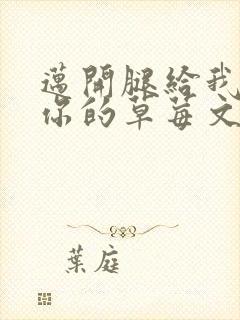 邁開腿給我
你的草莓文
葉庭